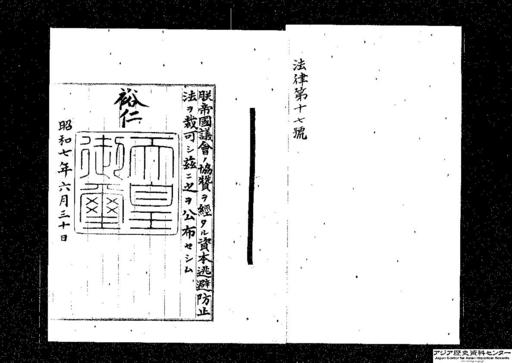 法律第十七號
朕帝國議會ノ協贊ヲ經タル資本逃避防止
法ヲ裁可シ茲ニ之ヲ公布セシム
裕仁
天皇
御璽
昭和七年六月三十日
アジア歴史資料センター
Japan Center for Asian Historical Records